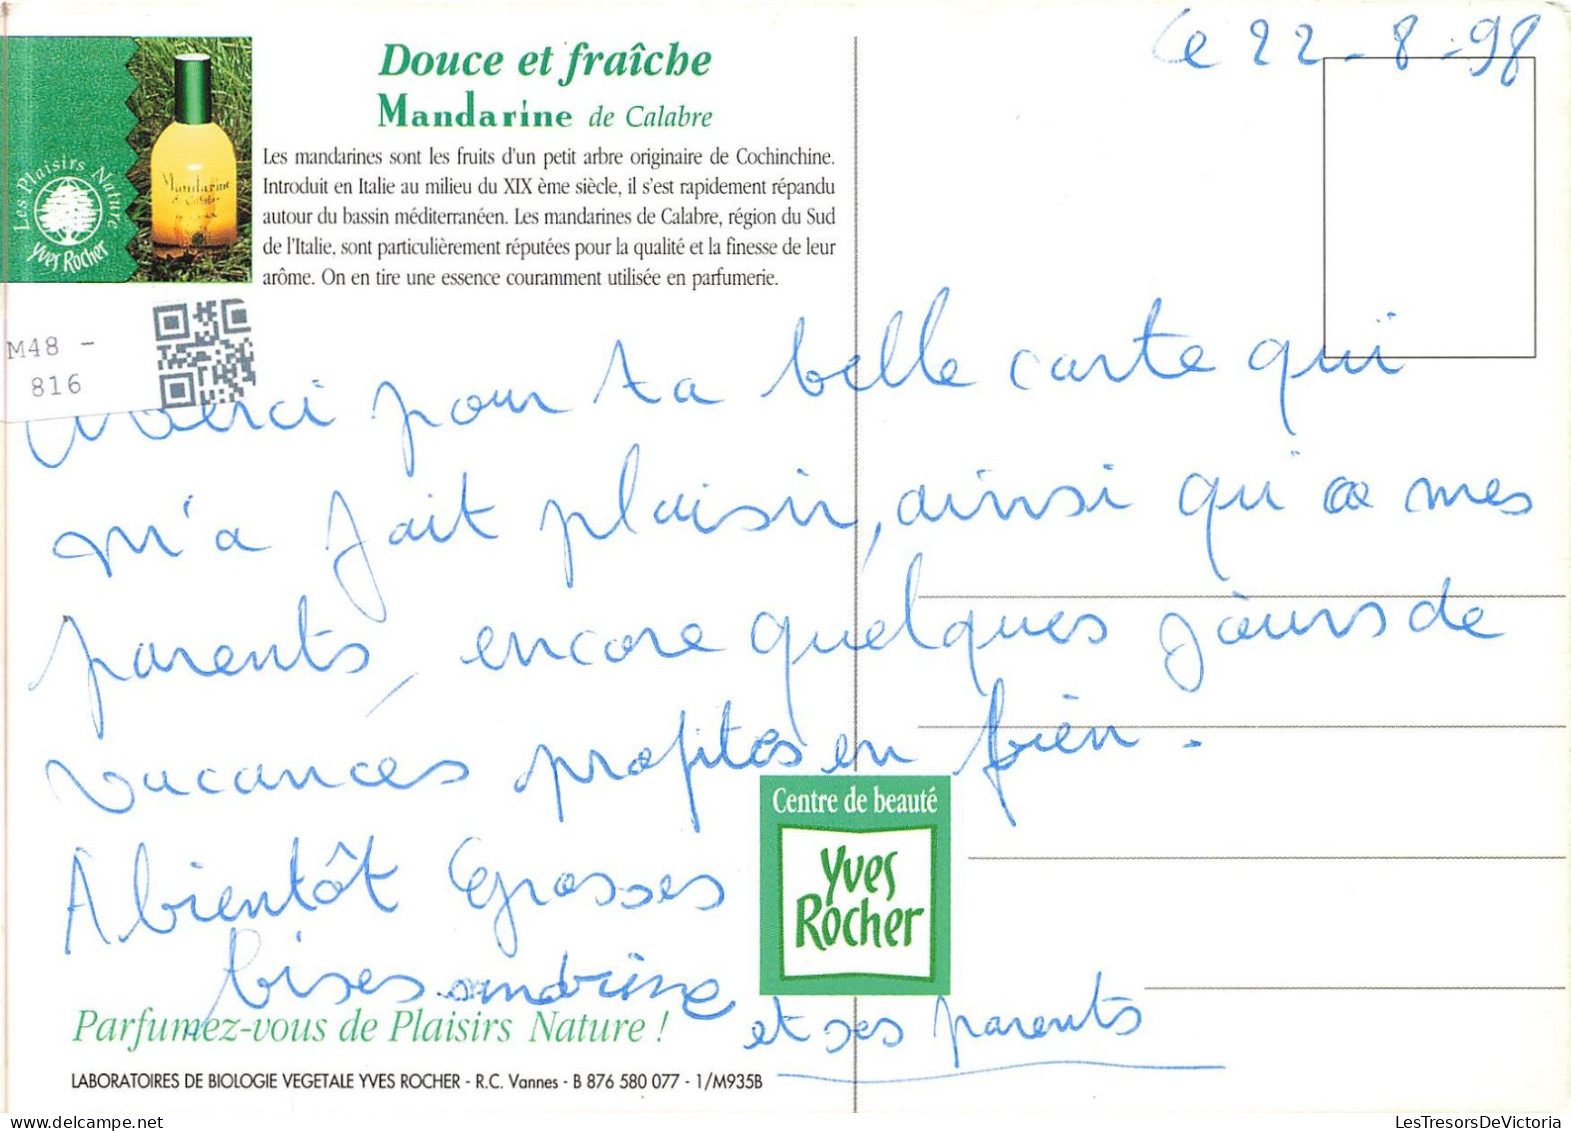 Le 22-8-98
Douce et fraîche
Mandarine de Calabre
Les mandarines sont les fruits d'un petit arbre originaire de Cochinchine.
Introduit en Italie au milieu du XIX ème siècle, il s'est rapidement répandu
autour du bassin méditerranéen. Les mandarines de Calabre, région du Sud
de l'Italie, sont particulièrement réputées pour la qualité et la finesse de leur
arôme. On en tire une essence couramment utilisée en parfumerie.
Les Plaisirs Nature
Yves Rocher
Mandarine
de Calabre
M48 -
816
Merci pour ta belle carte qui
m'a fait plaisir, ainsi qu'à mes
parents, encore quelques jours de
vacances profites en bien.
A bientôt Grosses
bises
et ses parents
Centre de beauté
Yves
Rocher
Parfumez-vous de Plaisirs Nature !
LABORATOIRES DE BIOLOGIE VEGETALE YVES ROCHER - R.C. Vannes - B 876 580 077 - 1/M935B
LesTresorsDeVictoria